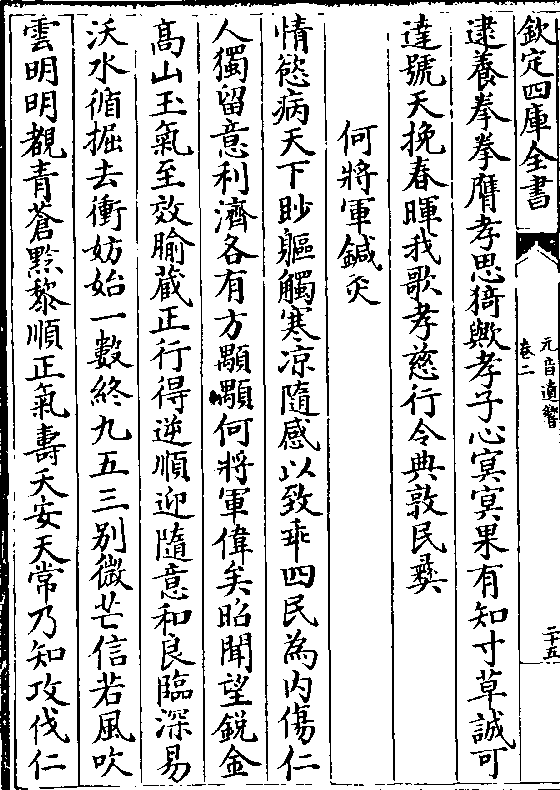 欽定四庫全書
元音遺響
卷二
二十五
逮養拳拳膺孝思猗歟孝子心㝠㝠果有知寸草誠可
達號天挽春暉我歌孝慈行令典敦民彛
何將軍鍼灸
情慾病天下眇軀觸寒涼隨感以致乖四民為内傷仁
人獨留意利濟各有方顒顒何將軍偉矣昭聞望銳金
髙山玉氣至效腧藏正行得逆順迎隨意和良臨深易
沃水循掘去衝妨始一數終九五三别微芒信若風吹
雲明明覩青蒼黔黎順正氣壽夭安天常乃知攻伐仁